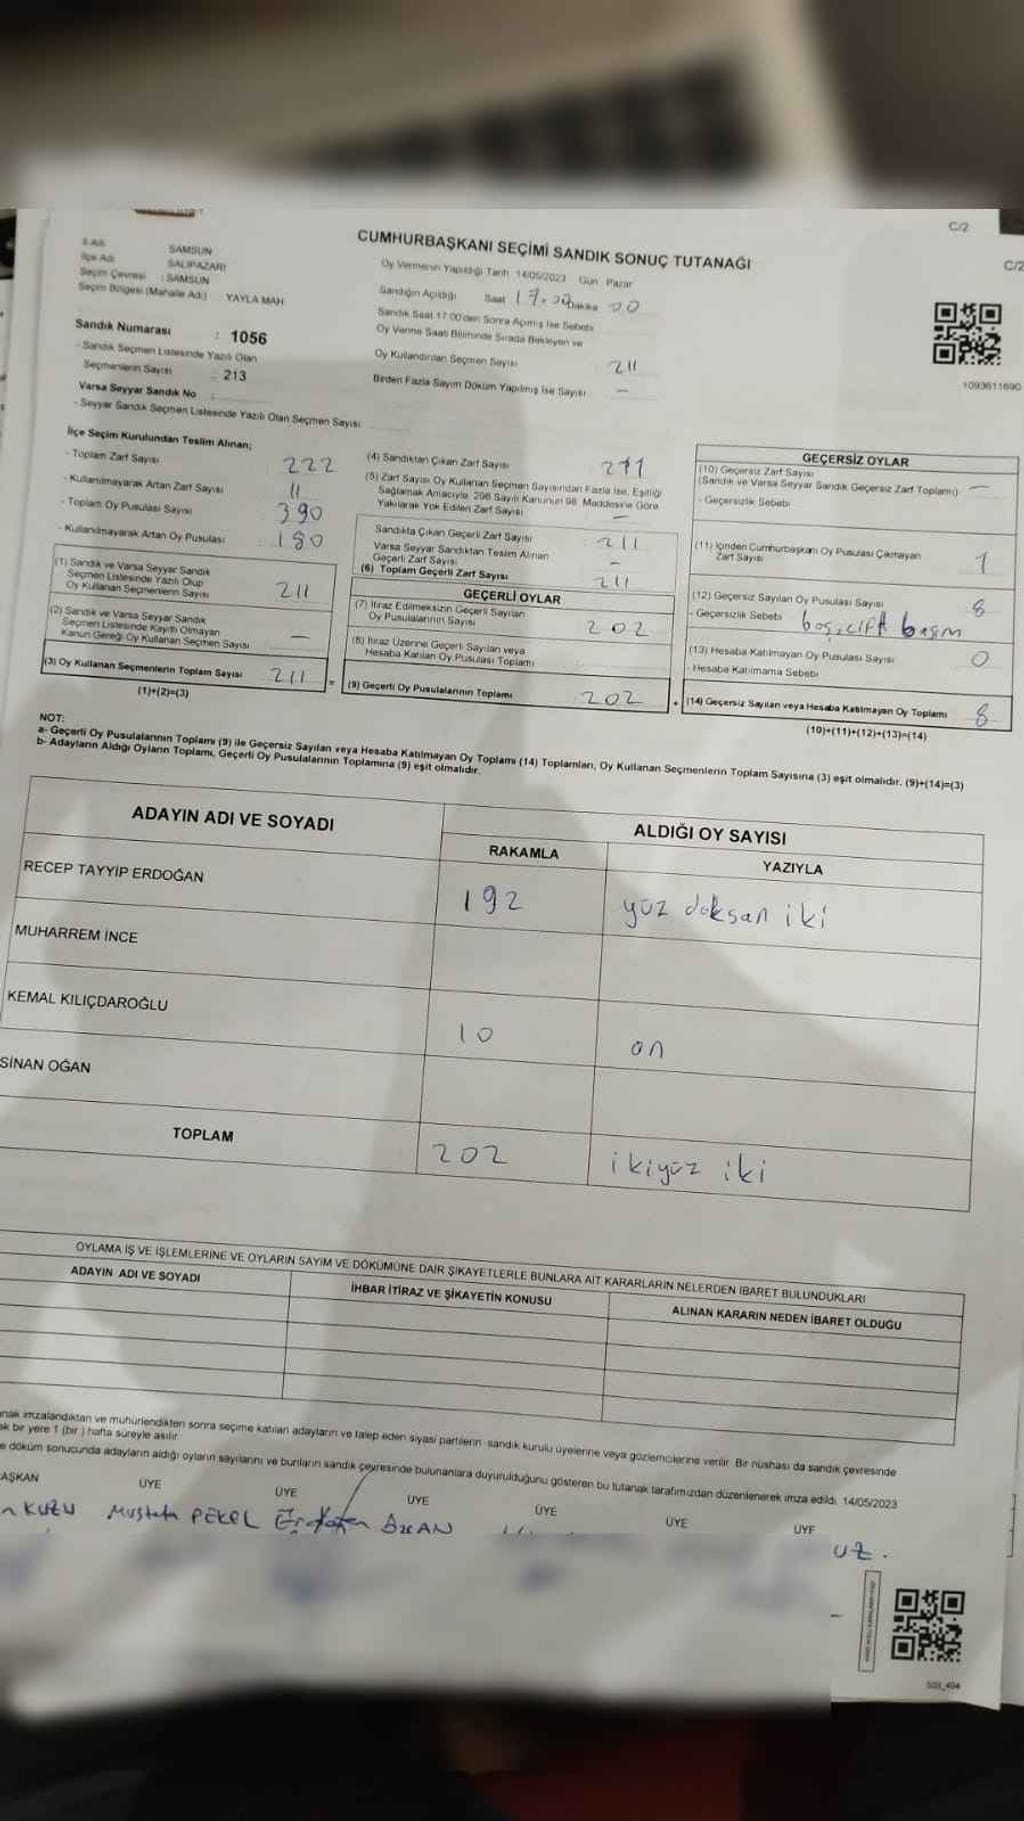 C/2
CUMHURBAŞKANI SEÇİMİ SANDIK SONUÇ TUTANAĞI
C/2
İl Adı SAMSUN
İlçe Adı SALIPAZARI
Seçim Çevresi : SAMSUN
Seçim Bölgesi (Mahalle Adı) YAYLA MAH
Sandık Numarası : 1056
- Sandık Seçmen Listesinde Yazılı Olan
Seçmenlerin Sayısı : 213
Varsa Seyyar Sandık No :
- Seyyar Sandık Seçmen Listesinde Yazılı Olan Seçmen Sayısı
Oy Vermenin Yapıldığı Tarih 14/05/2023 Gün Pazar
Sandığın Açıldığı Saat 17.00 Dakika 00
Sandık Saat 17:00'den Sonra Açılmış İse Sebebi
Oy Verme Saati Bitiminde Sırada Bekleyen ve
Oy Kullandırılan Seçmen Sayısı 211
Birden Fazla Sayım Döküm Yapılmış İse Sayısı —
1093611690
İlçe Seçim Kurulundan Teslim Alınan;
- Toplam Zarf Sayısı 222
- Kullanılmayarak Artan Zarf Sayısı 11
- Toplam Oy Pusulası Sayısı 390
- Kullanılmayarak Artan Oy Pusulası : 180
(1) Sandık ve Varsa Seyyar Sandık
Seçmen Listesinde Yazılı Olup
Oy Kullanan Seçmenlerin Sayısı 211
(2) Sandık ve Varsa Seyyar Sandık
Seçmen Listesinde Kayıtlı Olmayan
Kanun Gereği Oy Kullanan Seçmen Sayısı —
(3) Oy Kullanan Seçmenlerin Toplam Sayısı 211
(1)+(2)=(3)
(4) Sandıktan Çıkan Zarf Sayısı 211
(5) Zarf Sayısı Oy Kullanan Seçmen Sayısından Fazla İse, Eşitliği
Sağlamak Amacıyla, 298 Sayılı Kanunun 98. Maddesine Göre
Yakılarak Yok Edilen Zarf Sayısı —
Sandıkta Çıkan Geçerli Zarf Sayısı : 211
Varsa Seyyar Sandıktan Teslim Alınan
Geçerli Zarf Sayısı —
(6) Toplam Geçerli Zarf Sayısı 211
GEÇERLİ OYLAR
(7) İtiraz Edilmeksizin Geçerli Sayılan
Oy Pusulalarının Sayısı 202
(8) İtiraz Üzerine Geçerli Sayılan veya
Hesaba Katılan Oy Pusulası Toplamı
= (9) Geçerli Oy Pusulalarının Toplamı 202
GEÇERSİZ OYLAR
(10) Geçersiz Zarf Sayısı
(Sandık ve Varsa Seyyar Sandık Geçersiz Zarf Toplamı) —
- Geçersizlik Sebebi
(11) İçinden Cumhurbaşkanı Oy Pusulası Çıkmayan
Zarf Sayısı 1
(12) Geçersiz Sayılan Oy Pusulası Sayısı 8
- Geçersizlik Sebebi boş, çift basım
(13) Hesaba Katılmayan Oy Pusulası Sayısı 0
- Hesaba Katılmama Sebebi
+ (14) Geçersiz Sayılan veya Hesaba Katılmayan Oy Toplamı 8
(10)+(11)+(12)+(13)=(14)
NOT:
a- Geçerli Oy Pusulalarının Toplamı (9) ile Geçersiz Sayılan veya Hesaba Katılmayan Oy Toplamı (14) Toplamları, Oy Kullanan Seçmenlerin Toplam Sayısına (3) eşit olmalıdır. (9)+(14)=(3)
b- Adayların Aldığı Oyların Toplamı, Geçerli Oy Pusulalarının Toplamına (9) eşit olmalıdır.
ADAYIN ADI VE SOYADI
ALDIĞI OY SAYISI
RAKAMLA YAZIYLA
RECEP TAYYİP ERDOĞAN 192 yüz doksan iki
MUHARREM İNCE
KEMAL KILIÇDAROĞLU 10 on
SİNAN OĞAN
TOPLAM 202 ikiyüz iki
OYLAMA İŞ VE İŞLEMLERİNE VE OYLARIN SAYIM VE DÖKÜMÜNE DAİR ŞİKAYETLERLE BUNLARA AİT KARARLARIN NELERDEN İBARET BULUNDUKLARI
ADAYIN ADI VE SOYADI İHBAR İTİRAZ VE ŞİKAYETİN KONUSU ALINAN KARARIN NEDEN İBARET OLDUĞU
nak imzalandıktan ve mühürlendikten sonra seçime katılan adayların ve talep eden siyasi partilerin sandık kurulu üyelerine veya gözlemcilerine verilir. Bir nüshası da sandık çevresinde
k bir yere 1 (bir) hafta süreyle asılır.
e döküm sonucunda adayların aldığı oyların sayılarını ve bunların sandık çevresinde bulunanlara duyurulduğunu gösteren bu tutanak tarafımızdan düzenlenerek imza edildi. 14/05/2023
AŞKAN ÜYE ÜYE ÜYE ÜYE ÜYE ÜYE
n KUZU Mustafa PEKEL Erdoğan ÖZCAN
UZ.